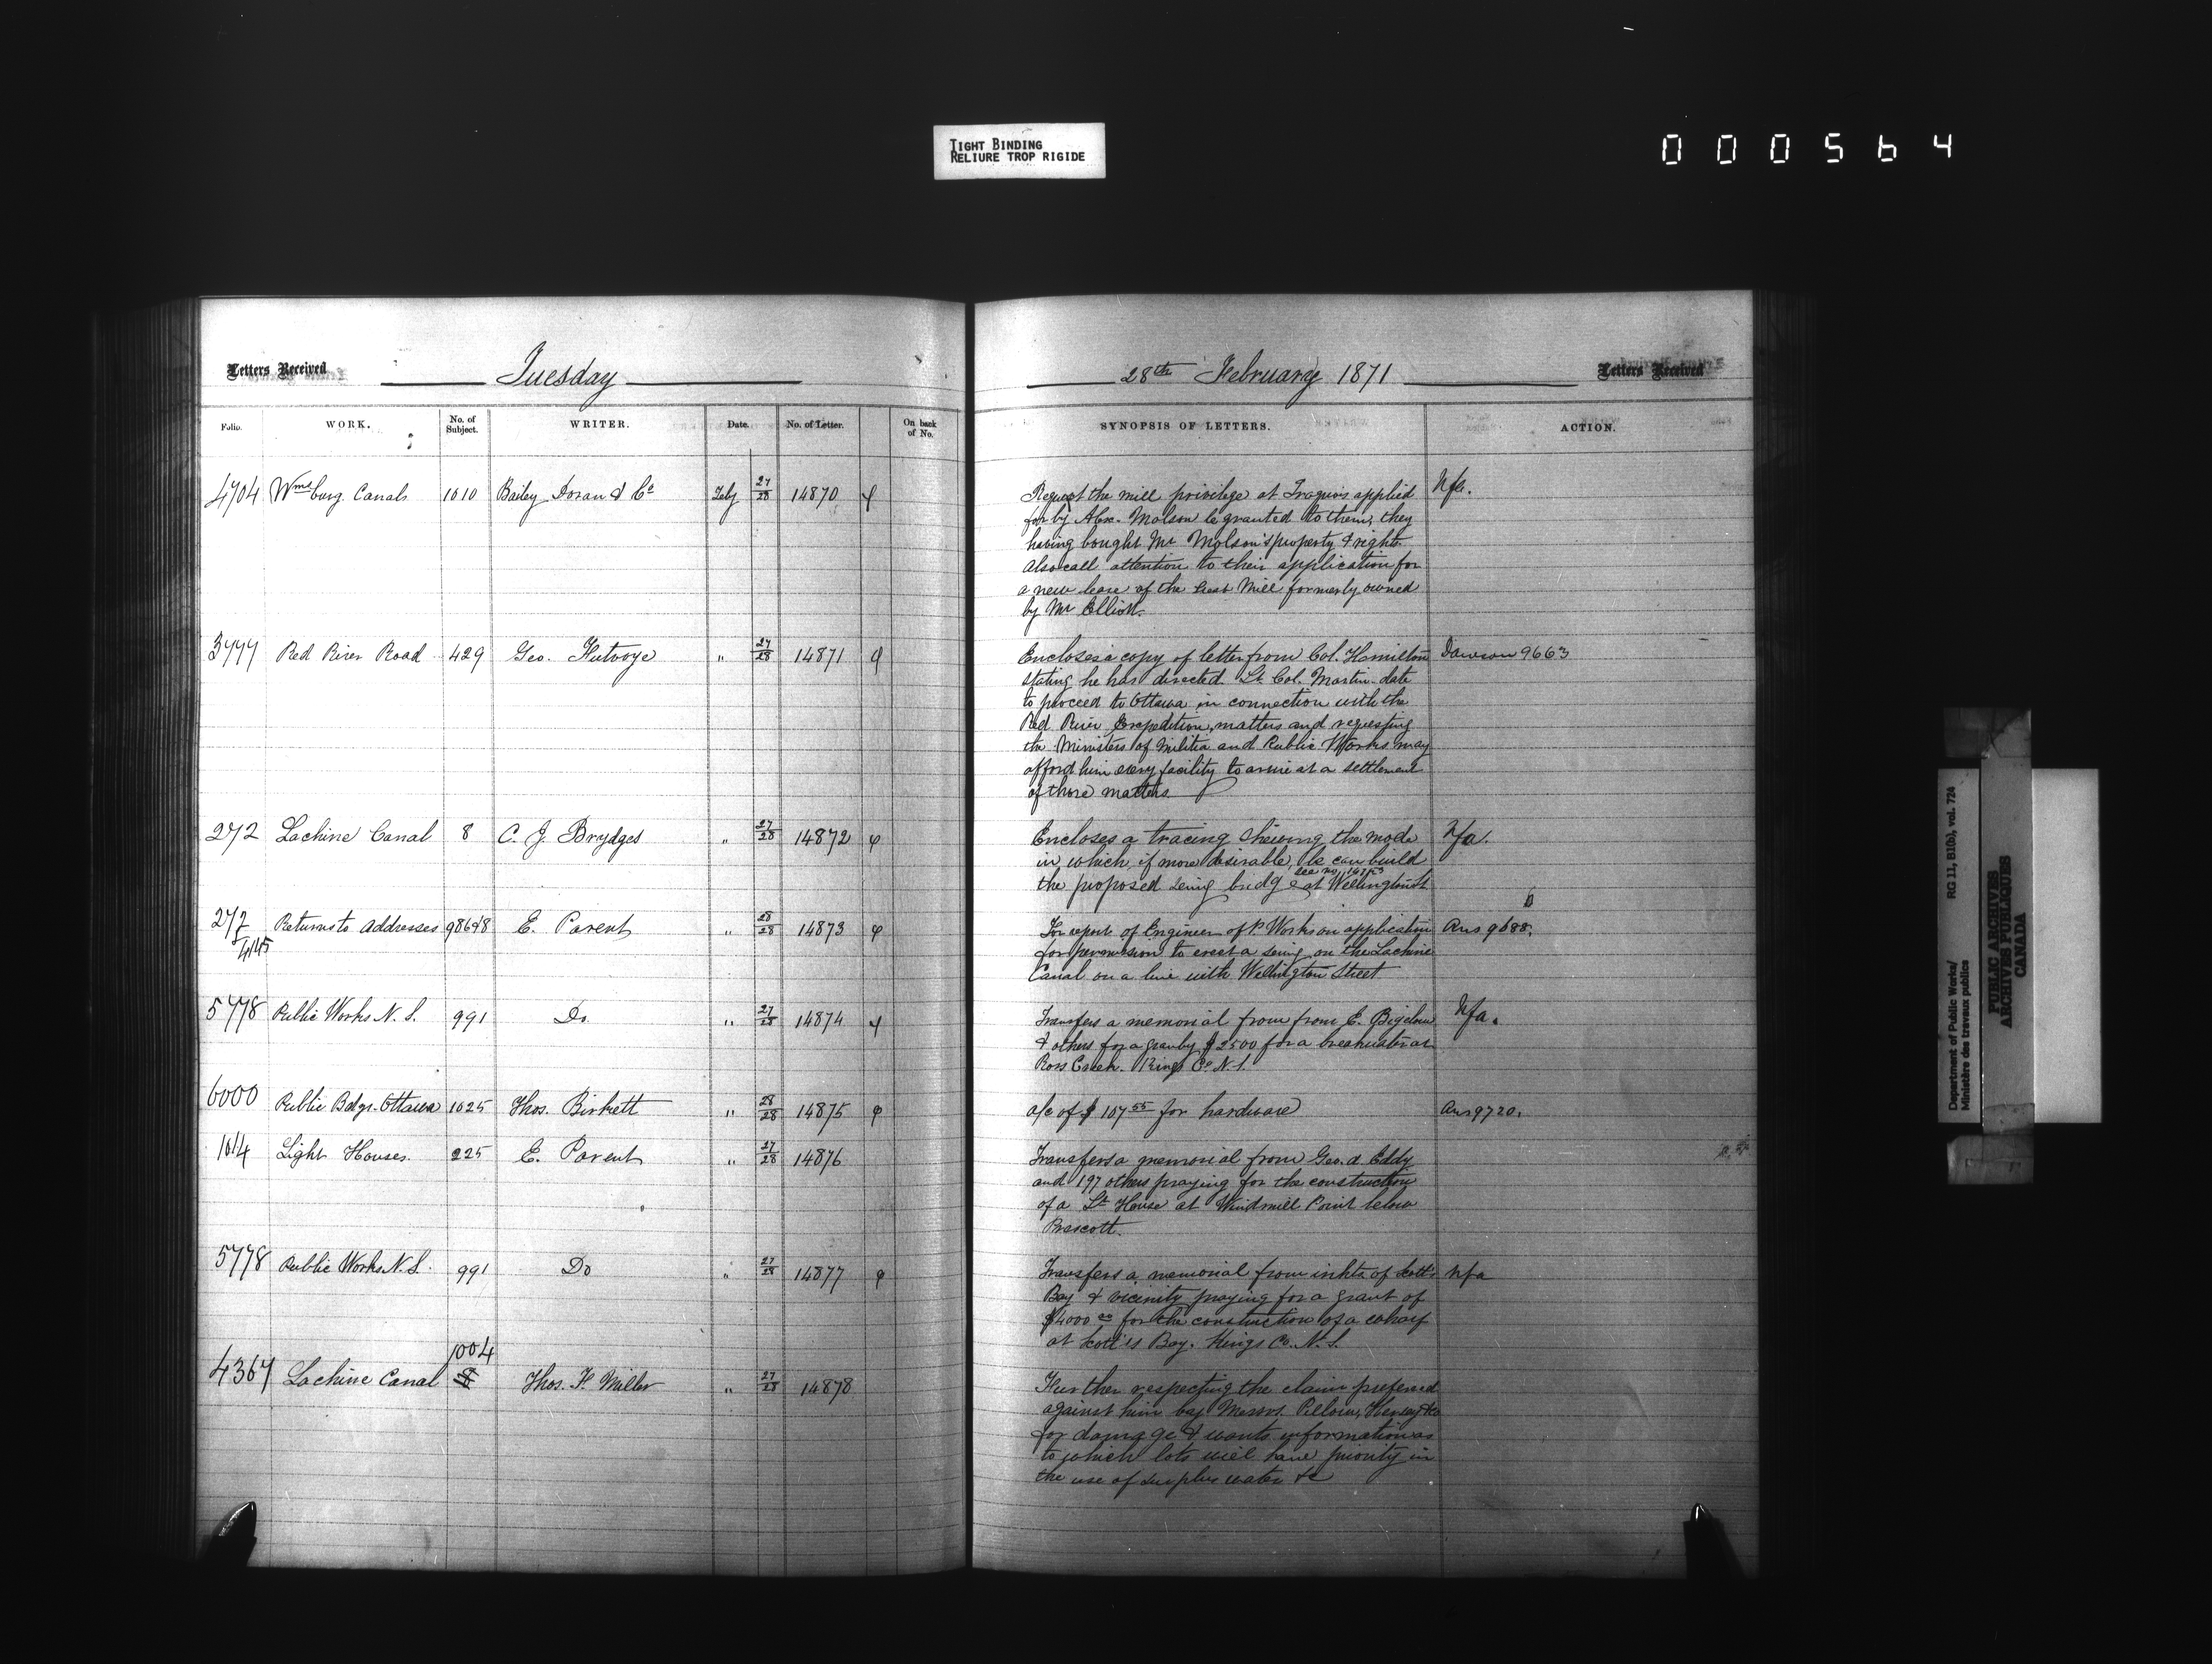 TIGHT BINDING
RELIURE TROP RIGIDE
000564
Letters Received
Tuesday
28th February 1871
Letters Received
Folio. WORK. No. of Subject. WRITER. Date. No. of Letter. On back of No. SYNOPSIS OF LETTERS. ACTION.
4704 Wmsburg Canals 1010 Bailey Doran & Co Feby 27/28 14870
Request the mill privilege at Iroquois applied Nfa.
for by Alex. Molson be granted to them, they
having bought Mr Molson's property & right.
Also call attention to their application for
a new lease of the Mill formerly owned
by Mr Elliott.
3777 Red River Road 429 Geo. Futvoye " 27/28 14871
Encloses a copy of letter from Col. Hamilton Dawson 9663
stating he has directed Lt Col. Martin date
to proceed to Ottawa in connection with the
Red River Expedition, matters and requesting
the Ministers of Militia and Public Works may
afford him every facility to arrive at a settlement
of those matters.
272 Lachine Canal 8 C. J. Brydges " 27/28 14872
Encloses a tracing shewing the mode Nfa.
in which, if more desirable, he can build
see no
the proposed swing bridge at Wellington St
272 Returns to Addresses E. Parent " 28/28 14873
4145
For report of Engineer of P. Works on application Ans 9688.
for permission to erect a swing on the Lachine
Canal on a line with Wellington Street
5778 Public Works N.S. 991 Do " 27/28 14874
Transfers a memorial from from E. Bigelow Nfa.
& others for a grant of $2500 for a breakwater at
Ross Creek. Kings Co. N.S.
6000 Public Bdgs. Ottawa 1025 Thos. Birkett " 28/28 14875
a/c of $107 55 for hardware Ans 9720.
1014 Light Houses. 225 E. Parent " 27/28 14876
Transfers a memorial from Geo. A. Eddy
and 197 others praying for the construction
of a Lt House at Windmill Point below
Prescott.
5778 Public Works N.S. 991 Do " 27/28 14877
Transfers a memorial from inhts of Scott's Nfa
Bay & vicinity praying for a grant of
$4000 00 for the construction of a wharf
at Scott's Bay. Kings Co. N.S.
1004
4367 Lachine Canal Thos. F. Miller " 27/28 14878
Further respecting the claim preferred
against him by Messrs. Pillow, Hersey & Co
for damage & wants information as
to which lots will have priority in
the use of surplus water &c
Department of Public Works/ RG 11, B1(b), vol. 724
Ministère des travaux publics
PUBLIC ARCHIVES
ARCHIVES PUBLIQUES
CANADA